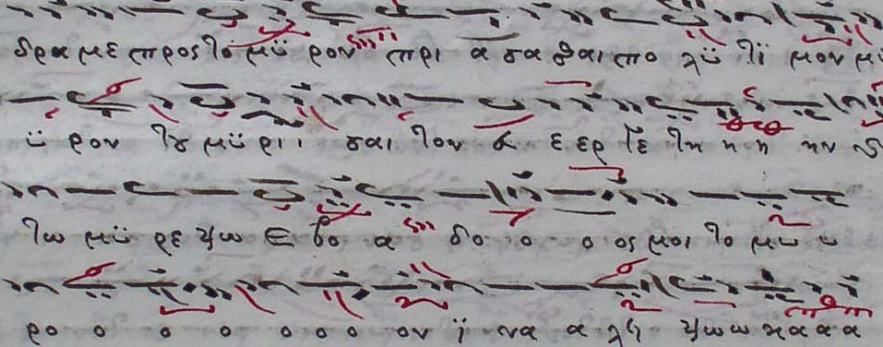 δραμε προς το μϋ ρον πρι α σα θαι πο λϋ τϊ μον μϋ
ϋ ρον του μϋ ρι ι σαι τον ε ερ γε τη η η ην
τω μϋ ρε ψω ε βο α δο ο ο ος μοι το μυ υ
ρο ο ο ο ο ο ο ον ϊ να α λει ψω ω κα α α